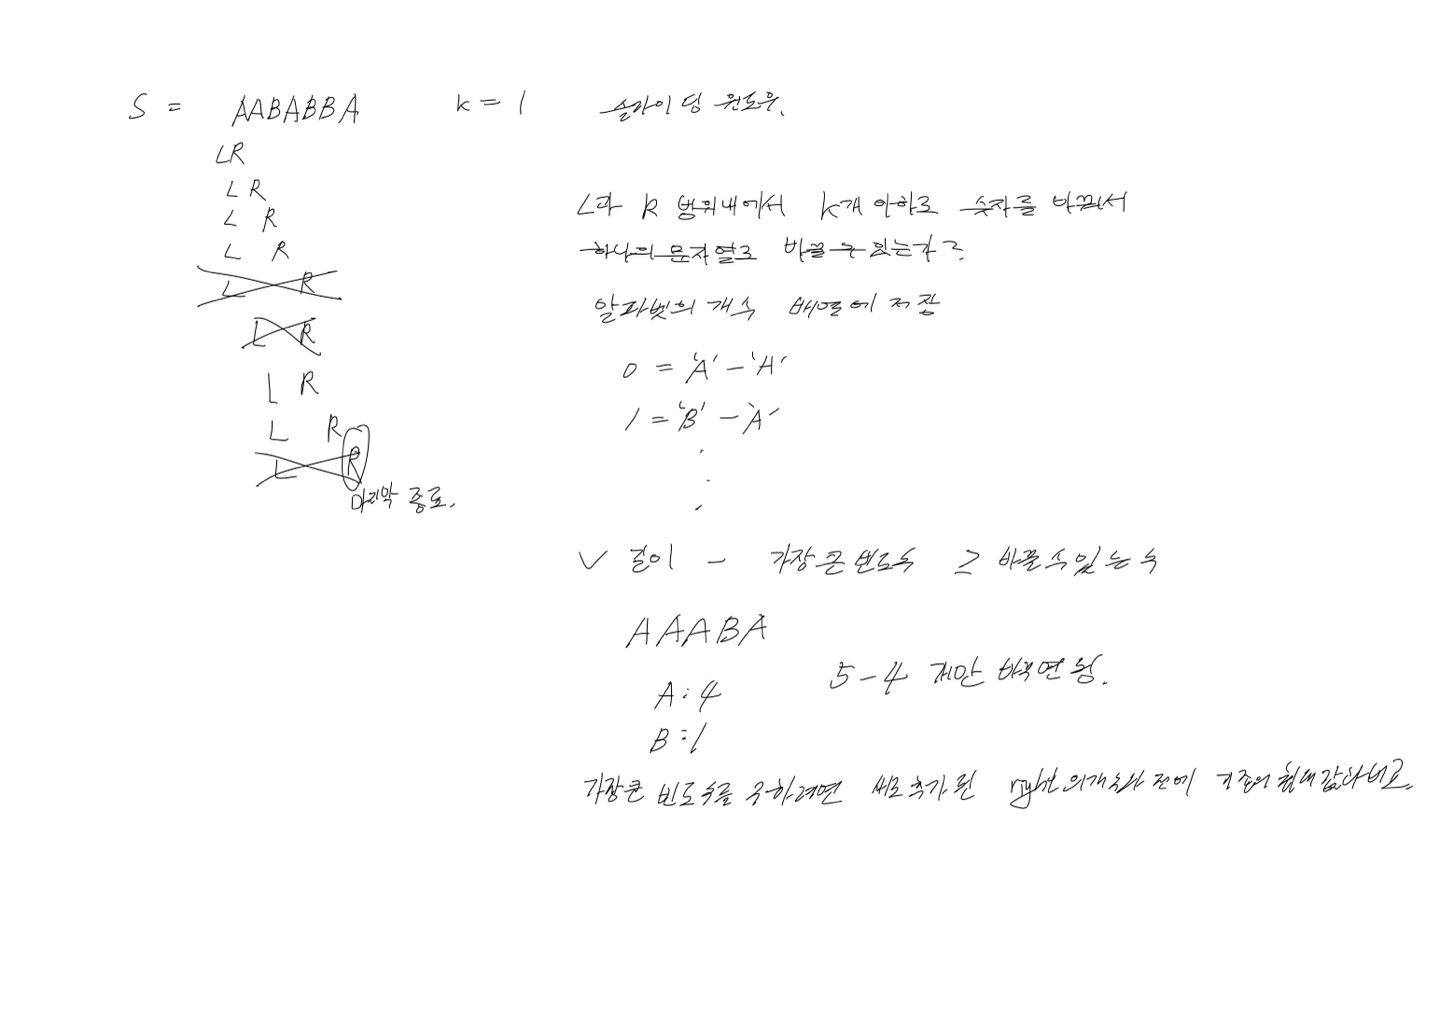 S = AABABBA k = 1 슬라이딩 윈도우.
LR
L R
L R
L R
L R
L R
L R
L R
L R
마지막 종료.
L과 R 범위내에서 k개 이하로 숫자를 바꿔서
하나의 문자열로 바꿀 수 있는가?
알파벳의 개수 배열에 저장
0 = 'A' - 'A'
1 = 'B' - 'A'
.
.
.
✓ 길이 - 가장 큰 빈도수 ≥ 바꿀 수 있는 수
AAABA
A : 4
B : 1
5-4 개만 바꾸면 됨.
가장큰 빈도수를 구하려면 새로 추가된 right의 개수와 전에 기존의 최대값과 비교.